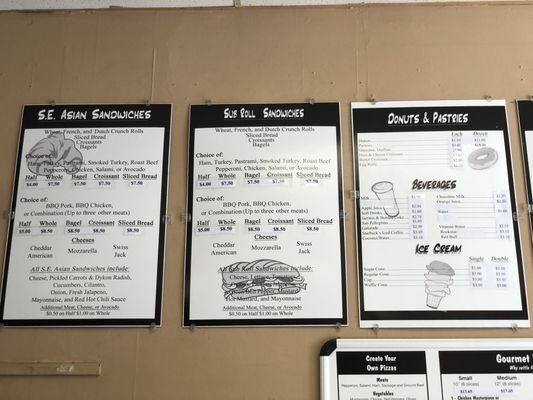 S.E. Asian Sandwiches
Wheat, French, and Dutch Crunch Rolls
Sliced Bread
Croissants
Bagels
Choice of:
Ham, Turkey, Pastrami, Smoked Turkey, Roast Beef
Pepperoni, Chicken, Salami, or Avocado
Half Whole Bagel Croissant Sliced Bread
$4.00 $7.50 $7.50 $7.50 $7.50
Choice of:
BBQ Pork, BBQ Chicken,
or Combination (Up to three other meats)
Half Whole Bagel Croissant Sliced Bread
$5.00 $8.50 $8.50 $8.50 $8.50
Cheeses
Cheddar Mozzarella Swiss
American Jack
All S.E. Asian Sandwiches include:
Cheese, Pickled Carrots & Dykon Radish,
Cucumbers, Cilantro,
Onion, Fresh Jalapeno,
Mayonnaise, and Red Hot Chili Sauce
Additional Meat, Cheese, or Avocado
$0.50 on Half $1.00 on Whole
Sub Roll Sandwiches
Wheat, French, and Dutch Crunch Rolls
Sliced Bread
Croissants
Bagels
Choice of:
Ham, Turkey, Pastrami, Smoked Turkey, Roast Beef
Pepperoni, Chicken, Salami, or Avocado
Half Whole Bagel Croissant Sliced Bread
$4.00 $7.50 $7.50 $7.50 $7.50
Choice of:
BBQ Pork, BBQ Chicken,
or Combination (Up to three other meats)
Half Whole Bagel Croissant Sliced Bread
$5.00 $8.50 $8.50 $8.50 $8.50
Cheeses
Cheddar Mozzarella Swiss
American Jack
All Sub Roll Sandwiches include:
Cheese, Lettuce,
Hot Mustard, and Mayonnaise
Additional Meat, Cheese, or Avocado
$0.50 on Half $1.00 on Whole
Donuts & Pastries
Each Dozen
Donuts
Pastries
Ham & Cheese Croissant
Butter Croissant
Egg Rolls
Beverages
Milk Chocolate Milk
Apple Juice Orange Juice
Soft Drinks Water
San Pellegrino
Gatorade Vitamin Water
Starbuck's Iced Coffee Rockstar
Coconut Water Red Bull
Ice Cream
Single Double
Sugar Cone
Regular Cone
Cup
Waffle Cone
Create Your
Own Pizzas
Meats
Pepperoni, Salami, Ham, Sausage and Ground Beef
Vegetables
Gourmet
Small Medium
10" (6 slices) 12" (8 slices)
$13.65 $17.65
1 - Chicken Masterpiece